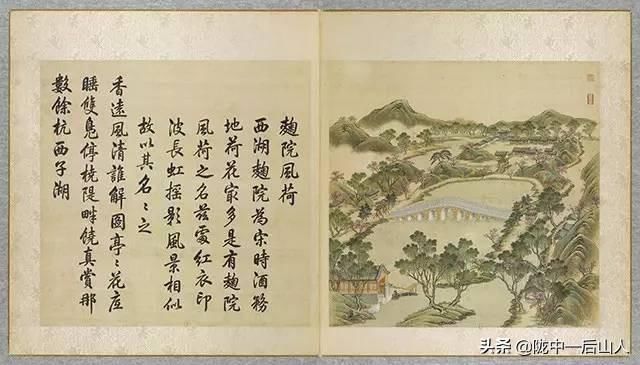 麴院風荷
西湖麴院為宋時酒務
地荷花㝡多是有麴院
風荷之名茲處紅衣印
波長虹搖影風景相似
故以其名〻之
香遠風清誰解圖亭〻花底
睡雙鳧停橈隄畔饒真賞那
數餘杭西子湖
头条 @陇中一后山人